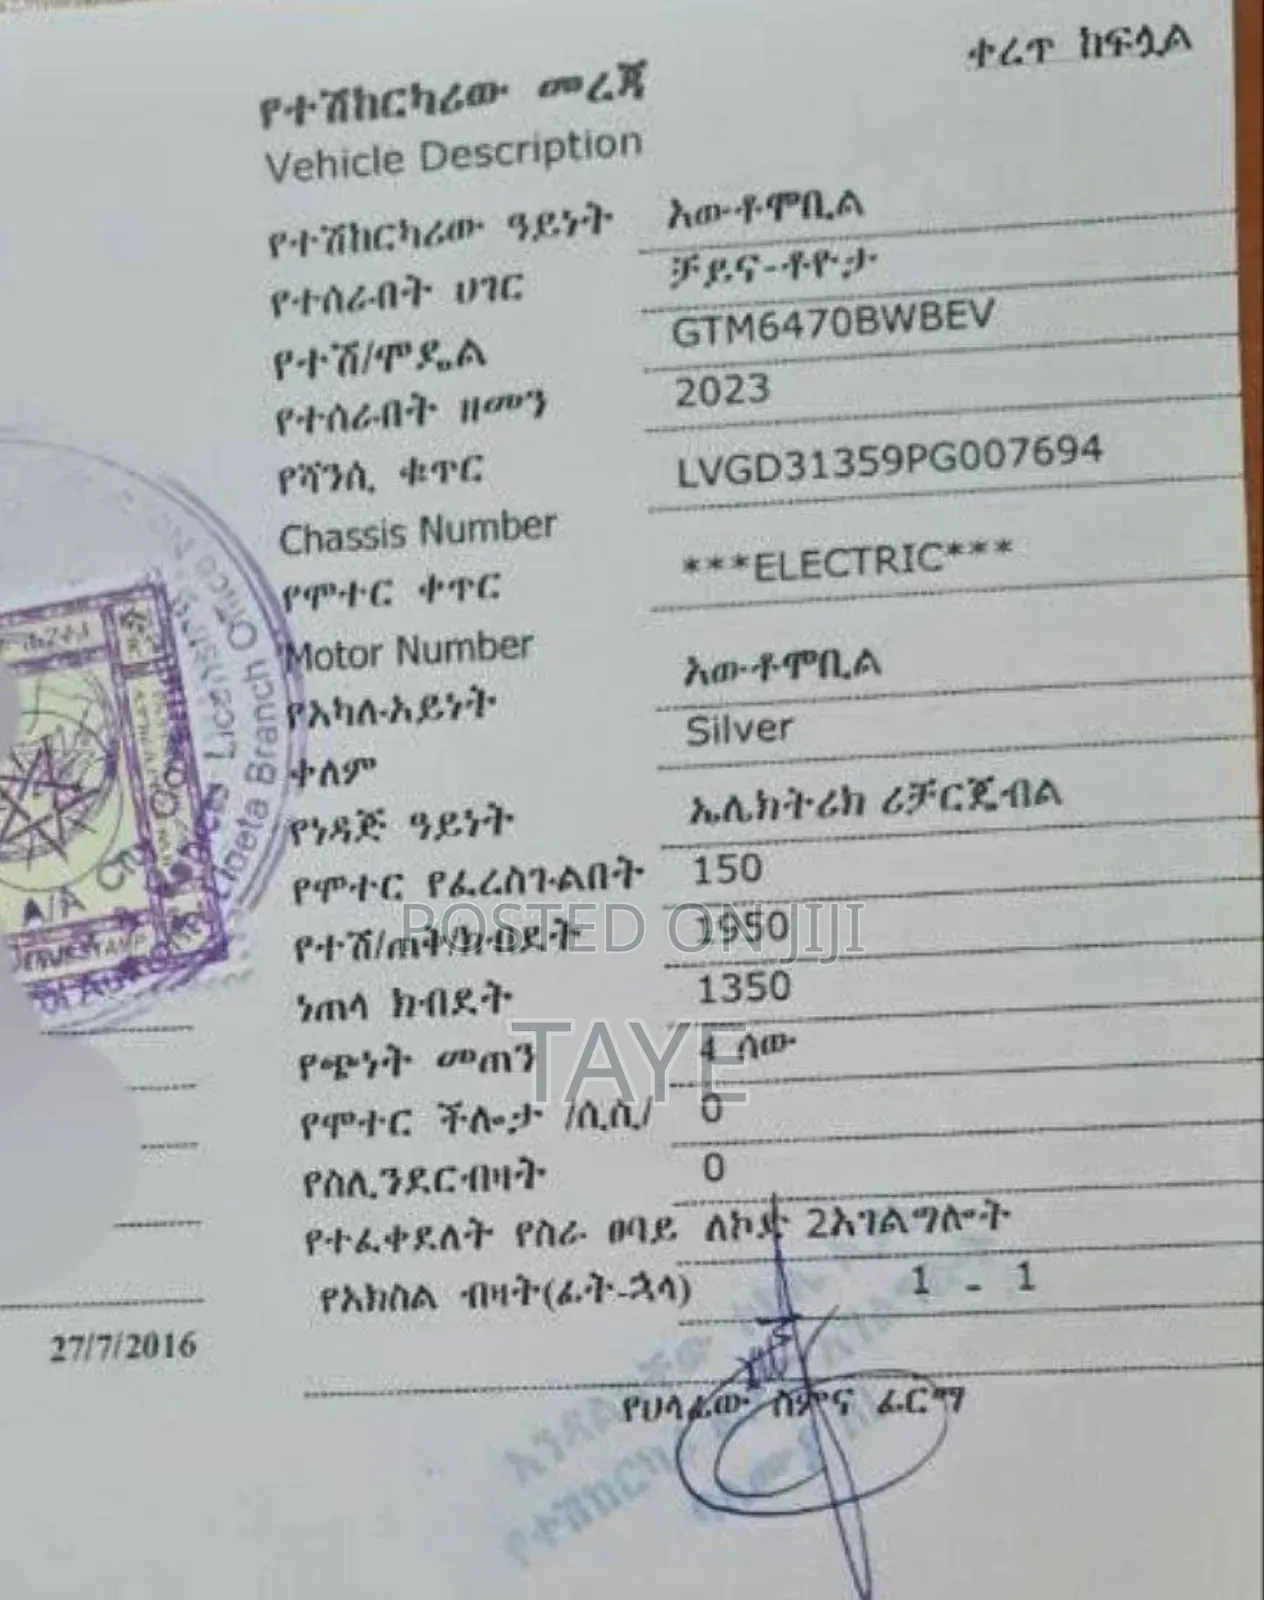 ቀረጥ ከፍሏል
የተሽከርካሪው መረጃ
Vehicle Description
የተሽከርካሪው ዓይነት አውቶሞቢል
የተሰራበት ሀገር ቻይና-ቶዮታ
የተሽ/ሞዴል GTM6470BWBEV
የተሰራበት ዘመን 2023
የሻንሲ ቁጥር LVGD31359PG007694
Chassis Number
የሞተር ቀጥር ***ELECTRIC***
Motor Number
የአካሉአይነት አውቶሞቢል
ቀለም Silver
የነዳጅ ዓይነት ኤሌክትሪክ ሪቻርጀብል
የሞተር የፈረስጉልበት 150
የተሽ/ጠቅ/ክብደት 1950
POSTED ON JIJI
ነጠላ ክብደት 1350
የጭነት መጠን 4 ሰው
TAYE
የሞተር ችሎታ /ሲሲ/ 0
የስሊንደርብዛት 0
የተፈቀደለት የስራ ፀባይ ለኮድ 2አገልግሎት
የአክስል ብዛት(ፊት-ኋላ) 1 - 1
27/7/2016
የሀላፊው ስምና ፊርማ
Branch Office
A/A